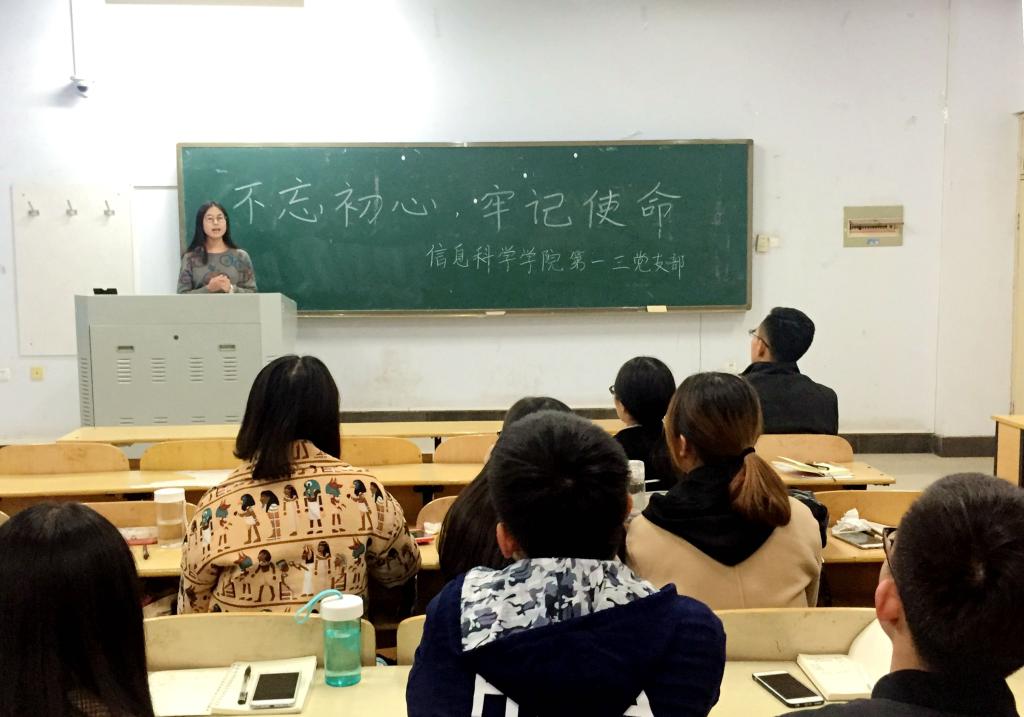 不忘初心,牢记使命
信息科学学院第一三党支部